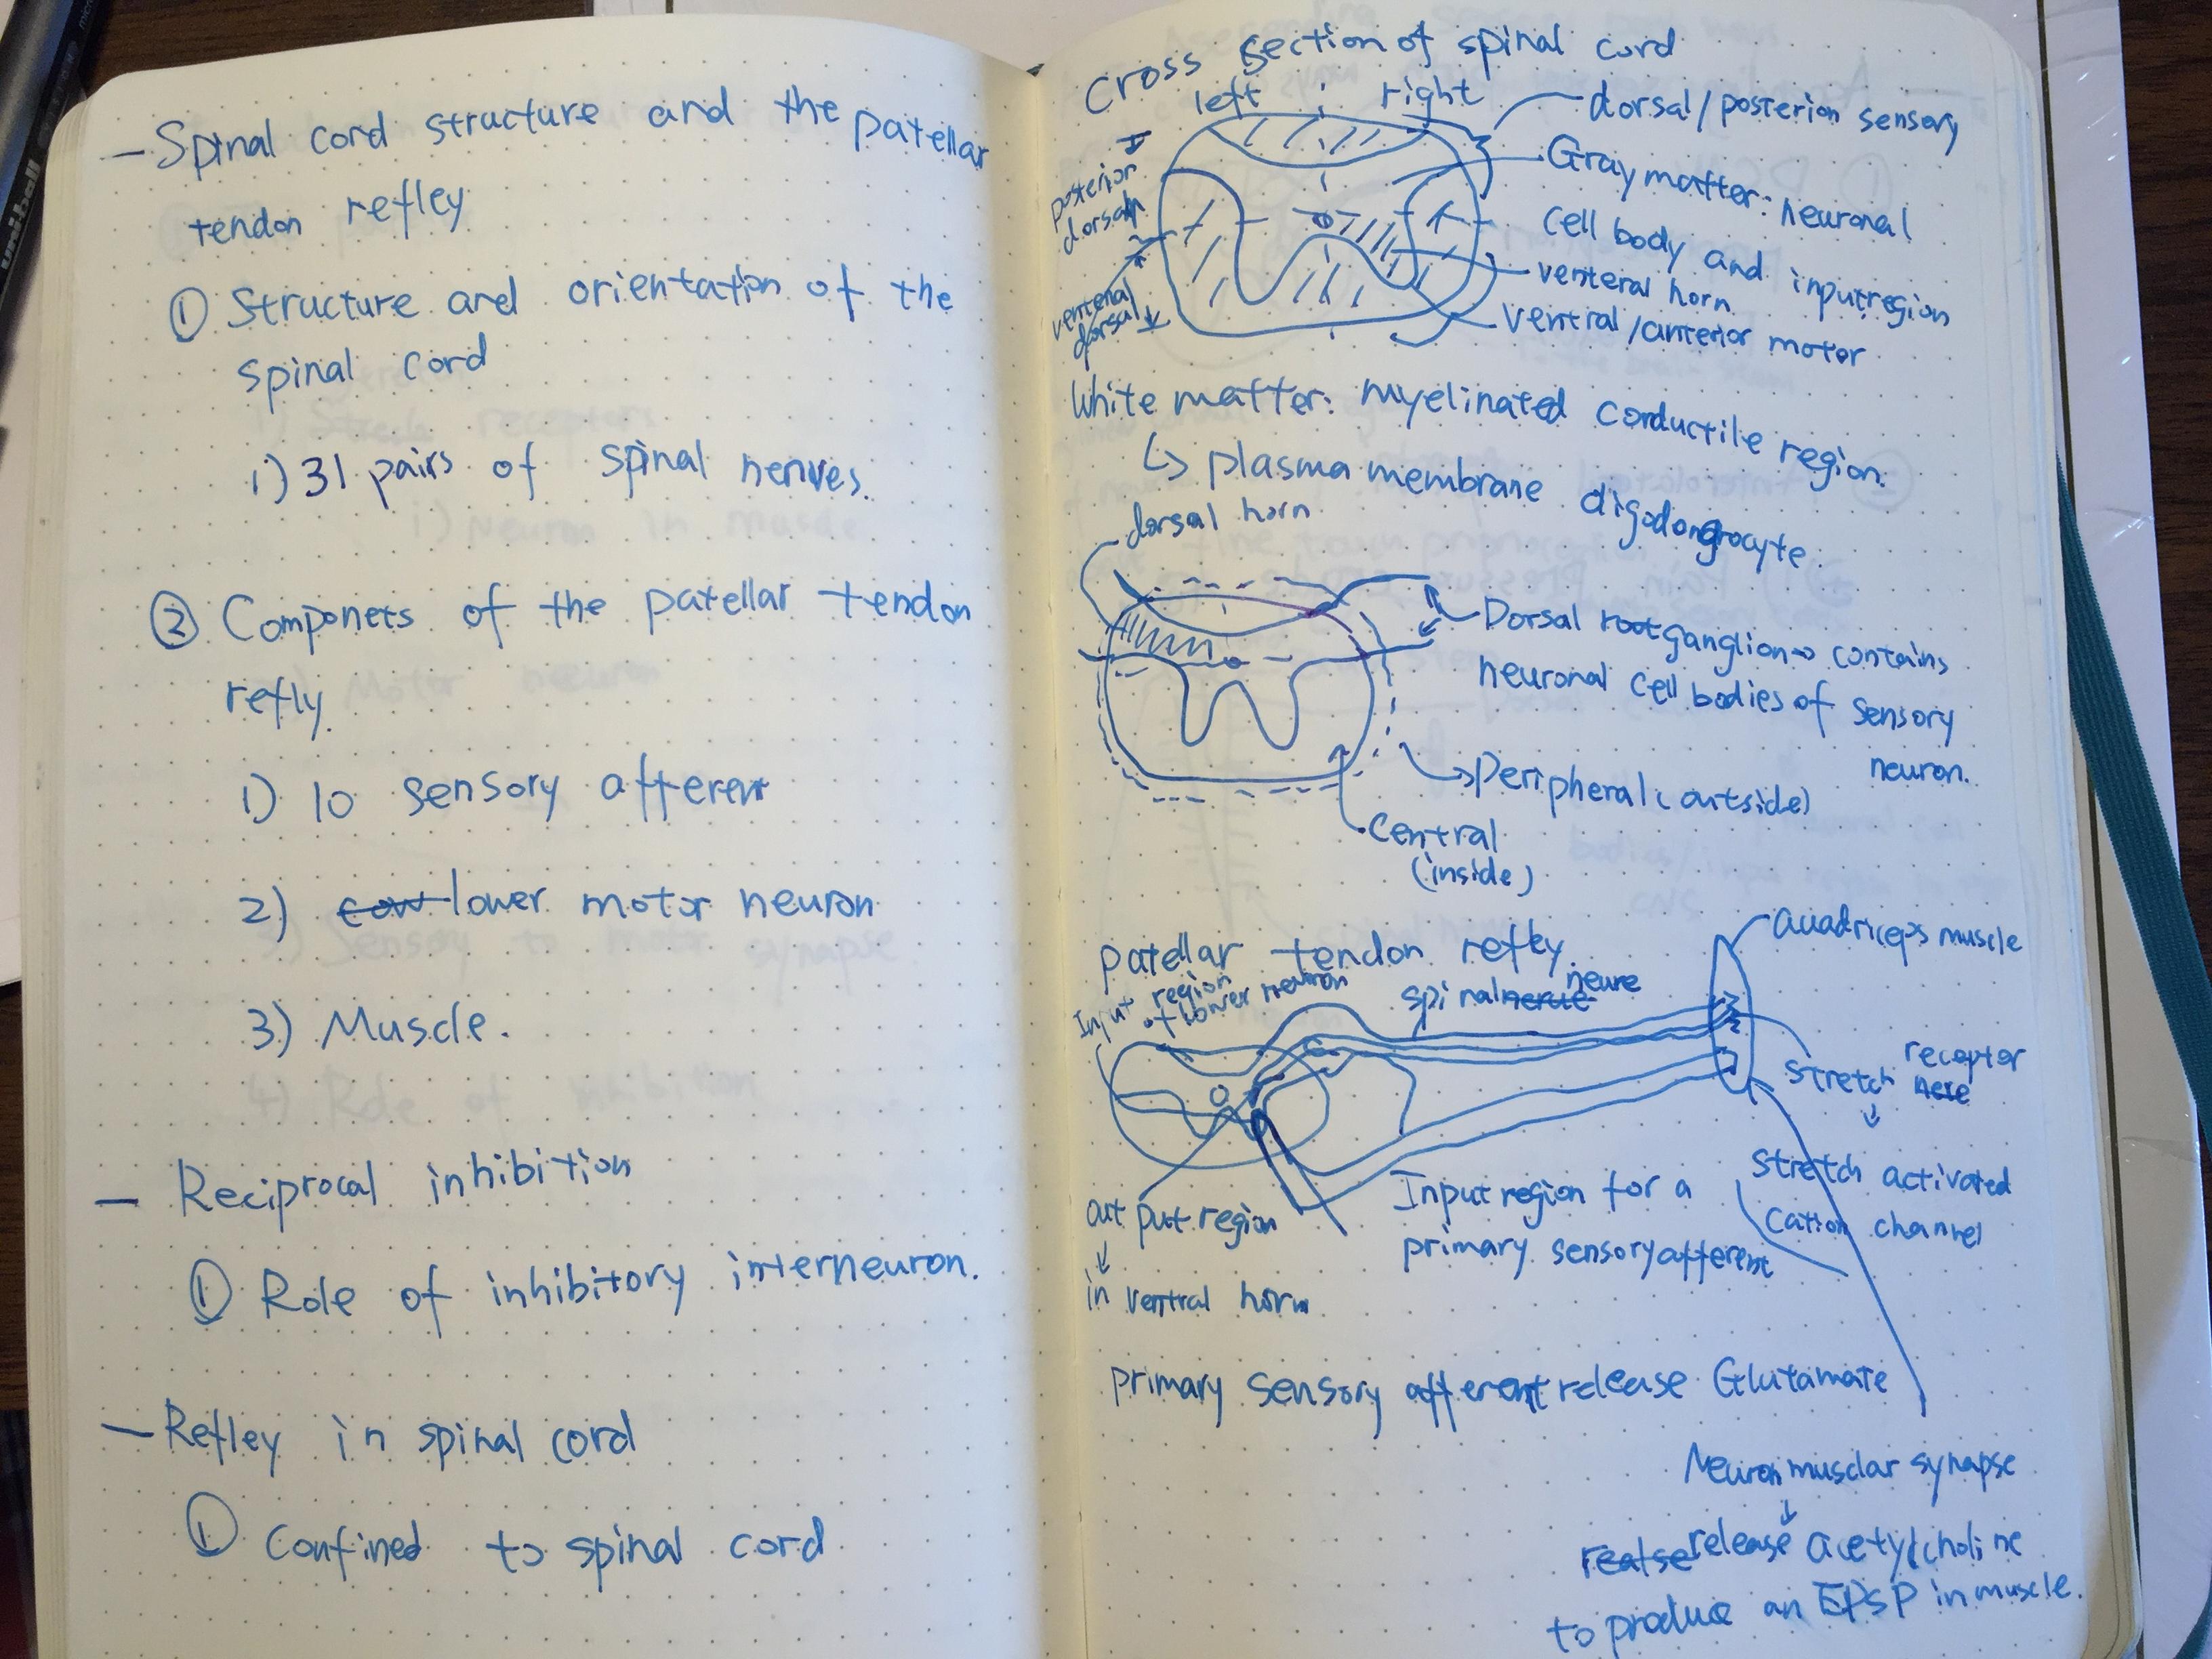 — Spinal cord structure and the patellar
tendon refley
① Structure and orientation of the
spinal cord
i) 31 pairs of spinal nerves.
② Componets of the patellar tendon
refly.
1) 1o sensory afferent
2) lower motor neuron
3) Muscle.
— Reciprocal inhibition
① Role of inhibitory interneuron.
— Refley in spinal cord
① Confined to spinal cord
Cross section of spinal cord
left right
dorsal/posterion sensory
posterior
dorsal
Gray matter: neuronal
cell body and input region
venteral horn
ventral/anterior motor
venteral
dorsal
White matter: myelinated conductile region.
↳ plasma membrane oligodongrocyte.
dorsal horn
Dorsal root ganglion → contains
neuronal cell bodies of sensory
neuron.
Peripheral (outside)
Central
(inside)
patellar tendon refly.
Quadriceps muscle
Input region
of lower neuron
spinal neure
stretch receptor
here
↓
Stretch activated
cation channel
Input region for a
primary sensory afferent
out put region
↓
in ventral horn
primary sensory afferent release Glutamate
Neuron musclar synapse
↓
release acetylcholine
to produce an EPSP in muscle.
uniball